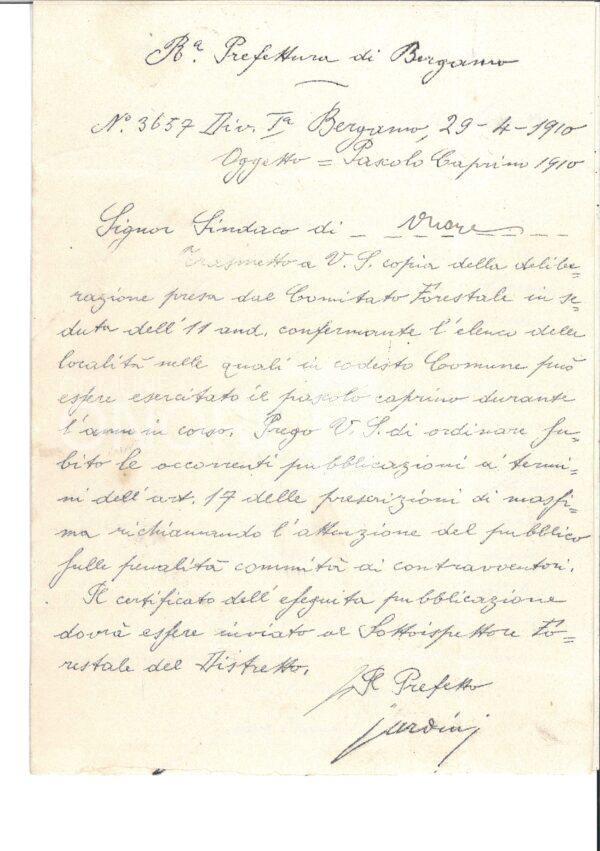 Rª. Prefettura di Bergamo
Nº. 3657 Div. Iª Bergamo, 29-4-1910
Oggetto = Pascolo Caprino 1910
Signor Sindaco di
Trasmetto a V. S. copia della delibe=
razione presa dal Comitato Forestale in se=
duta dell'11 and. confermante l'elenco delle
località nelle quali in codesto Comune può
essere esercitato il pascolo caprino durante
l'anno in corso. Prego V. S. di ordinare su=
bito le occorrenti pubblicazioni a' termi=
ni dell'art. 17 delle prescrizioni di massi=
ma richiamando l'attenzione del pubblico
sulle penalità commità ai contravventori.
Il certificato dell'eseguita pubblicazione
dovrà essere inviato al Sottoispettore Fo=
restale del Distretto.
Il Prefetto